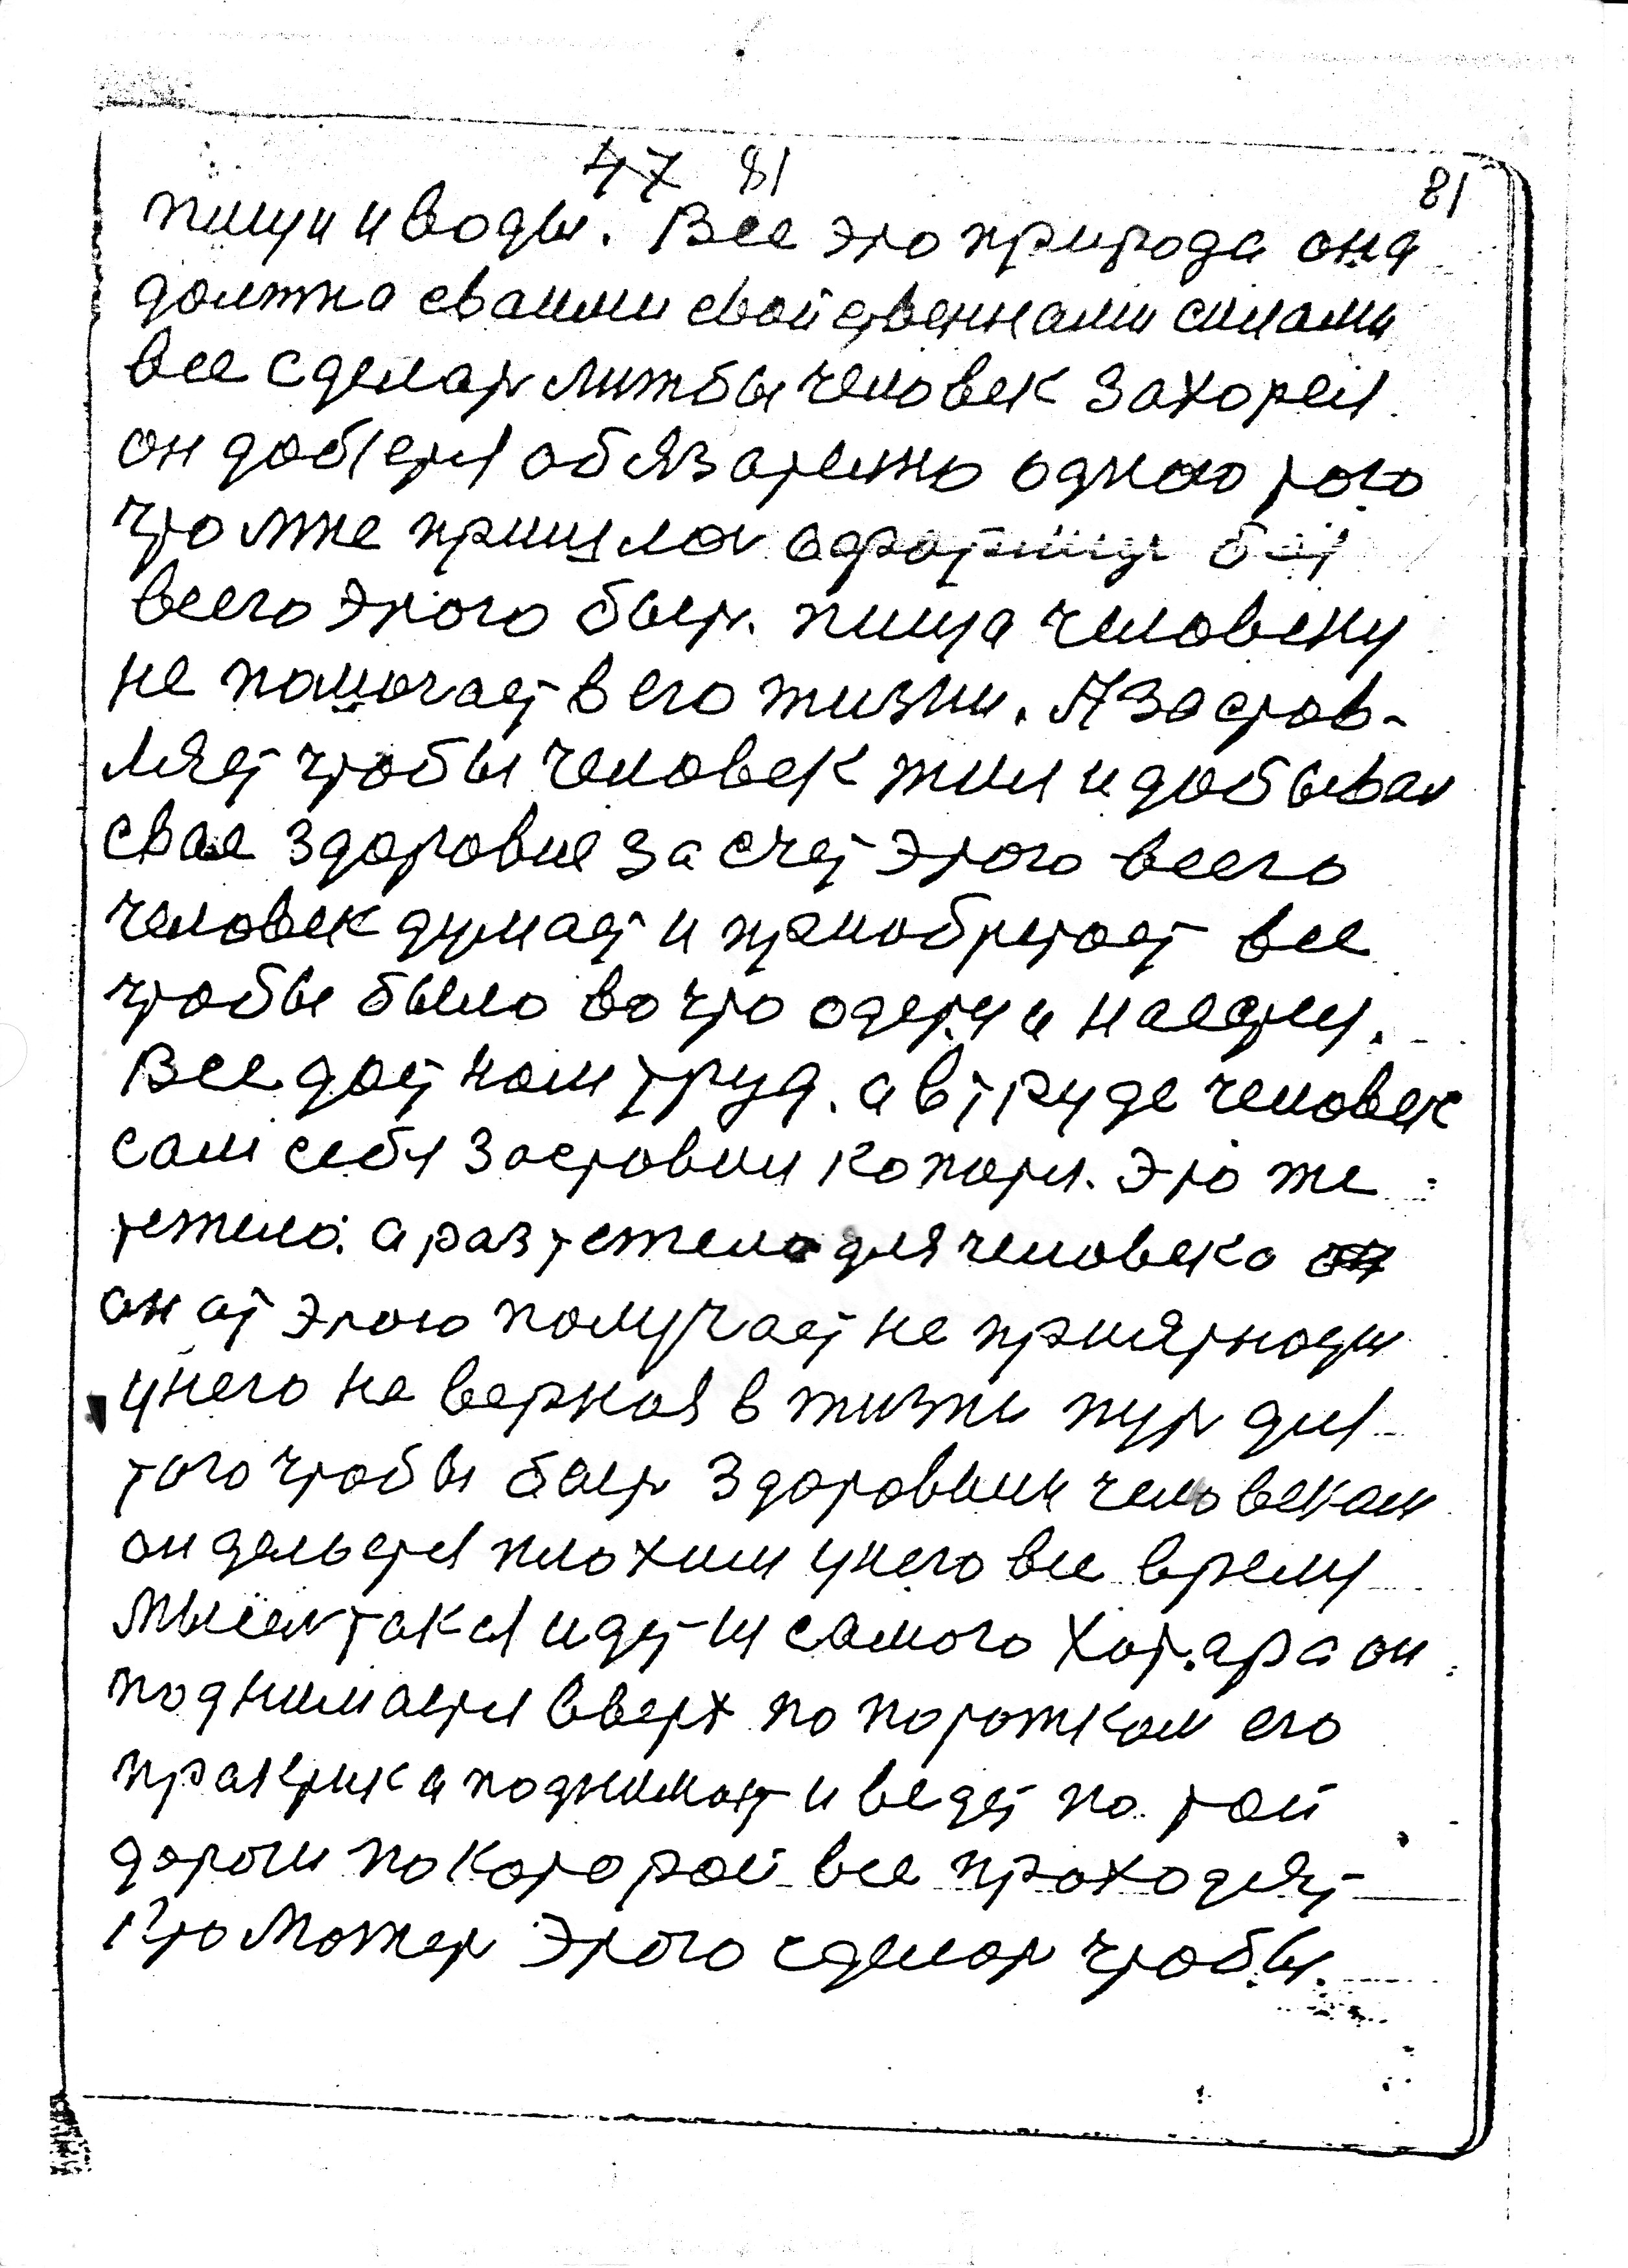 47 81
81
пищи и воды. Все это природа она
должна сваими свойственнами силами
все сделать лижбы человек захотел
он добьется обязательно одного того
что мне пришлось
всего этого быть. пища человеку
не помогает в его жизни. А застав-
ляет чтобы человек жил и добывал
свае здоровие за счет этого всего
человек думает и приобретает все
чтобы было во что одется и наестся.
Все дает нам труд. а в труде человек
сам себя заставил копатся. Это же
тежело. а раз тежело для человека
он от этого получает не приятности
у него не верная в жизни путь для
того чтобы быть здоровим человекам
он дельется плохим у него все время
мысль такая идет и самого
поднимается вверх по порожкам его
практика поднимает и ведет по той
дороги по которой все проходят
Кто может этого сделать чтобы